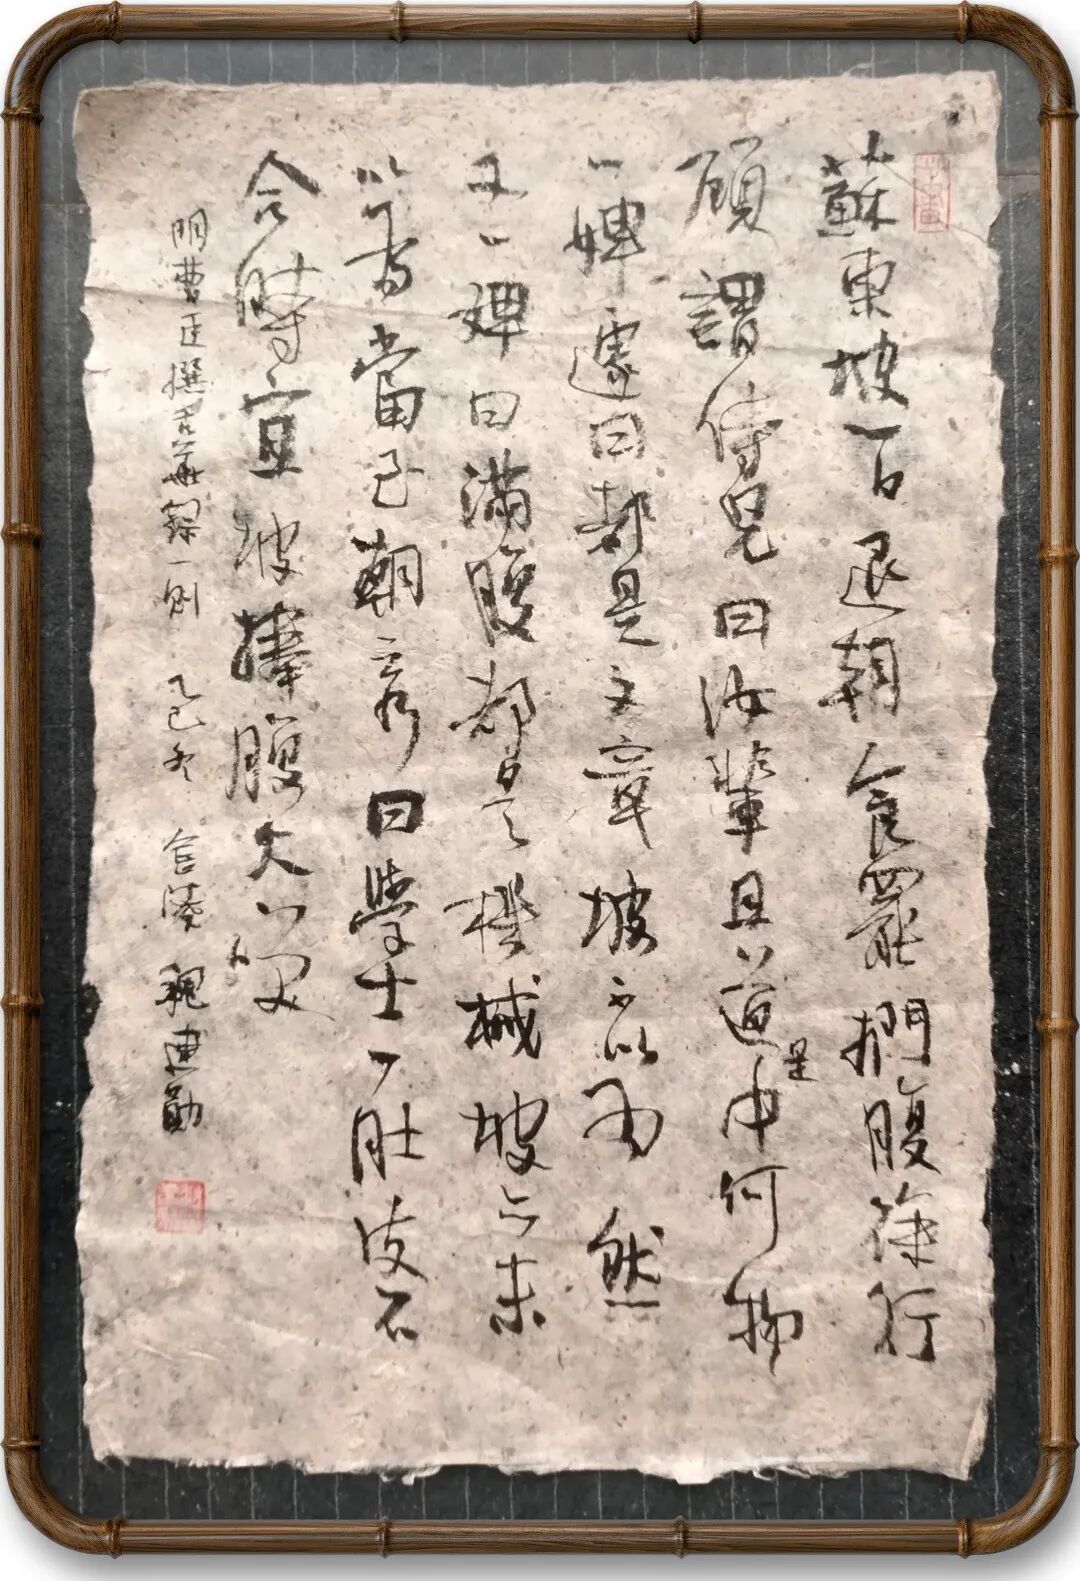 蘇東坡一日退朝食罷捫腹徐行
顧謂侍兒曰汝輩且道是中何物
一婢遽曰都是文章坡不以為然
又一婢曰滿腹都是機械坡亦未
以為當至朝雲曰學士一肚皮不
合時宜坡捧腹大笑
明曹臣撰舌華錄一則 乙巳冬 魏